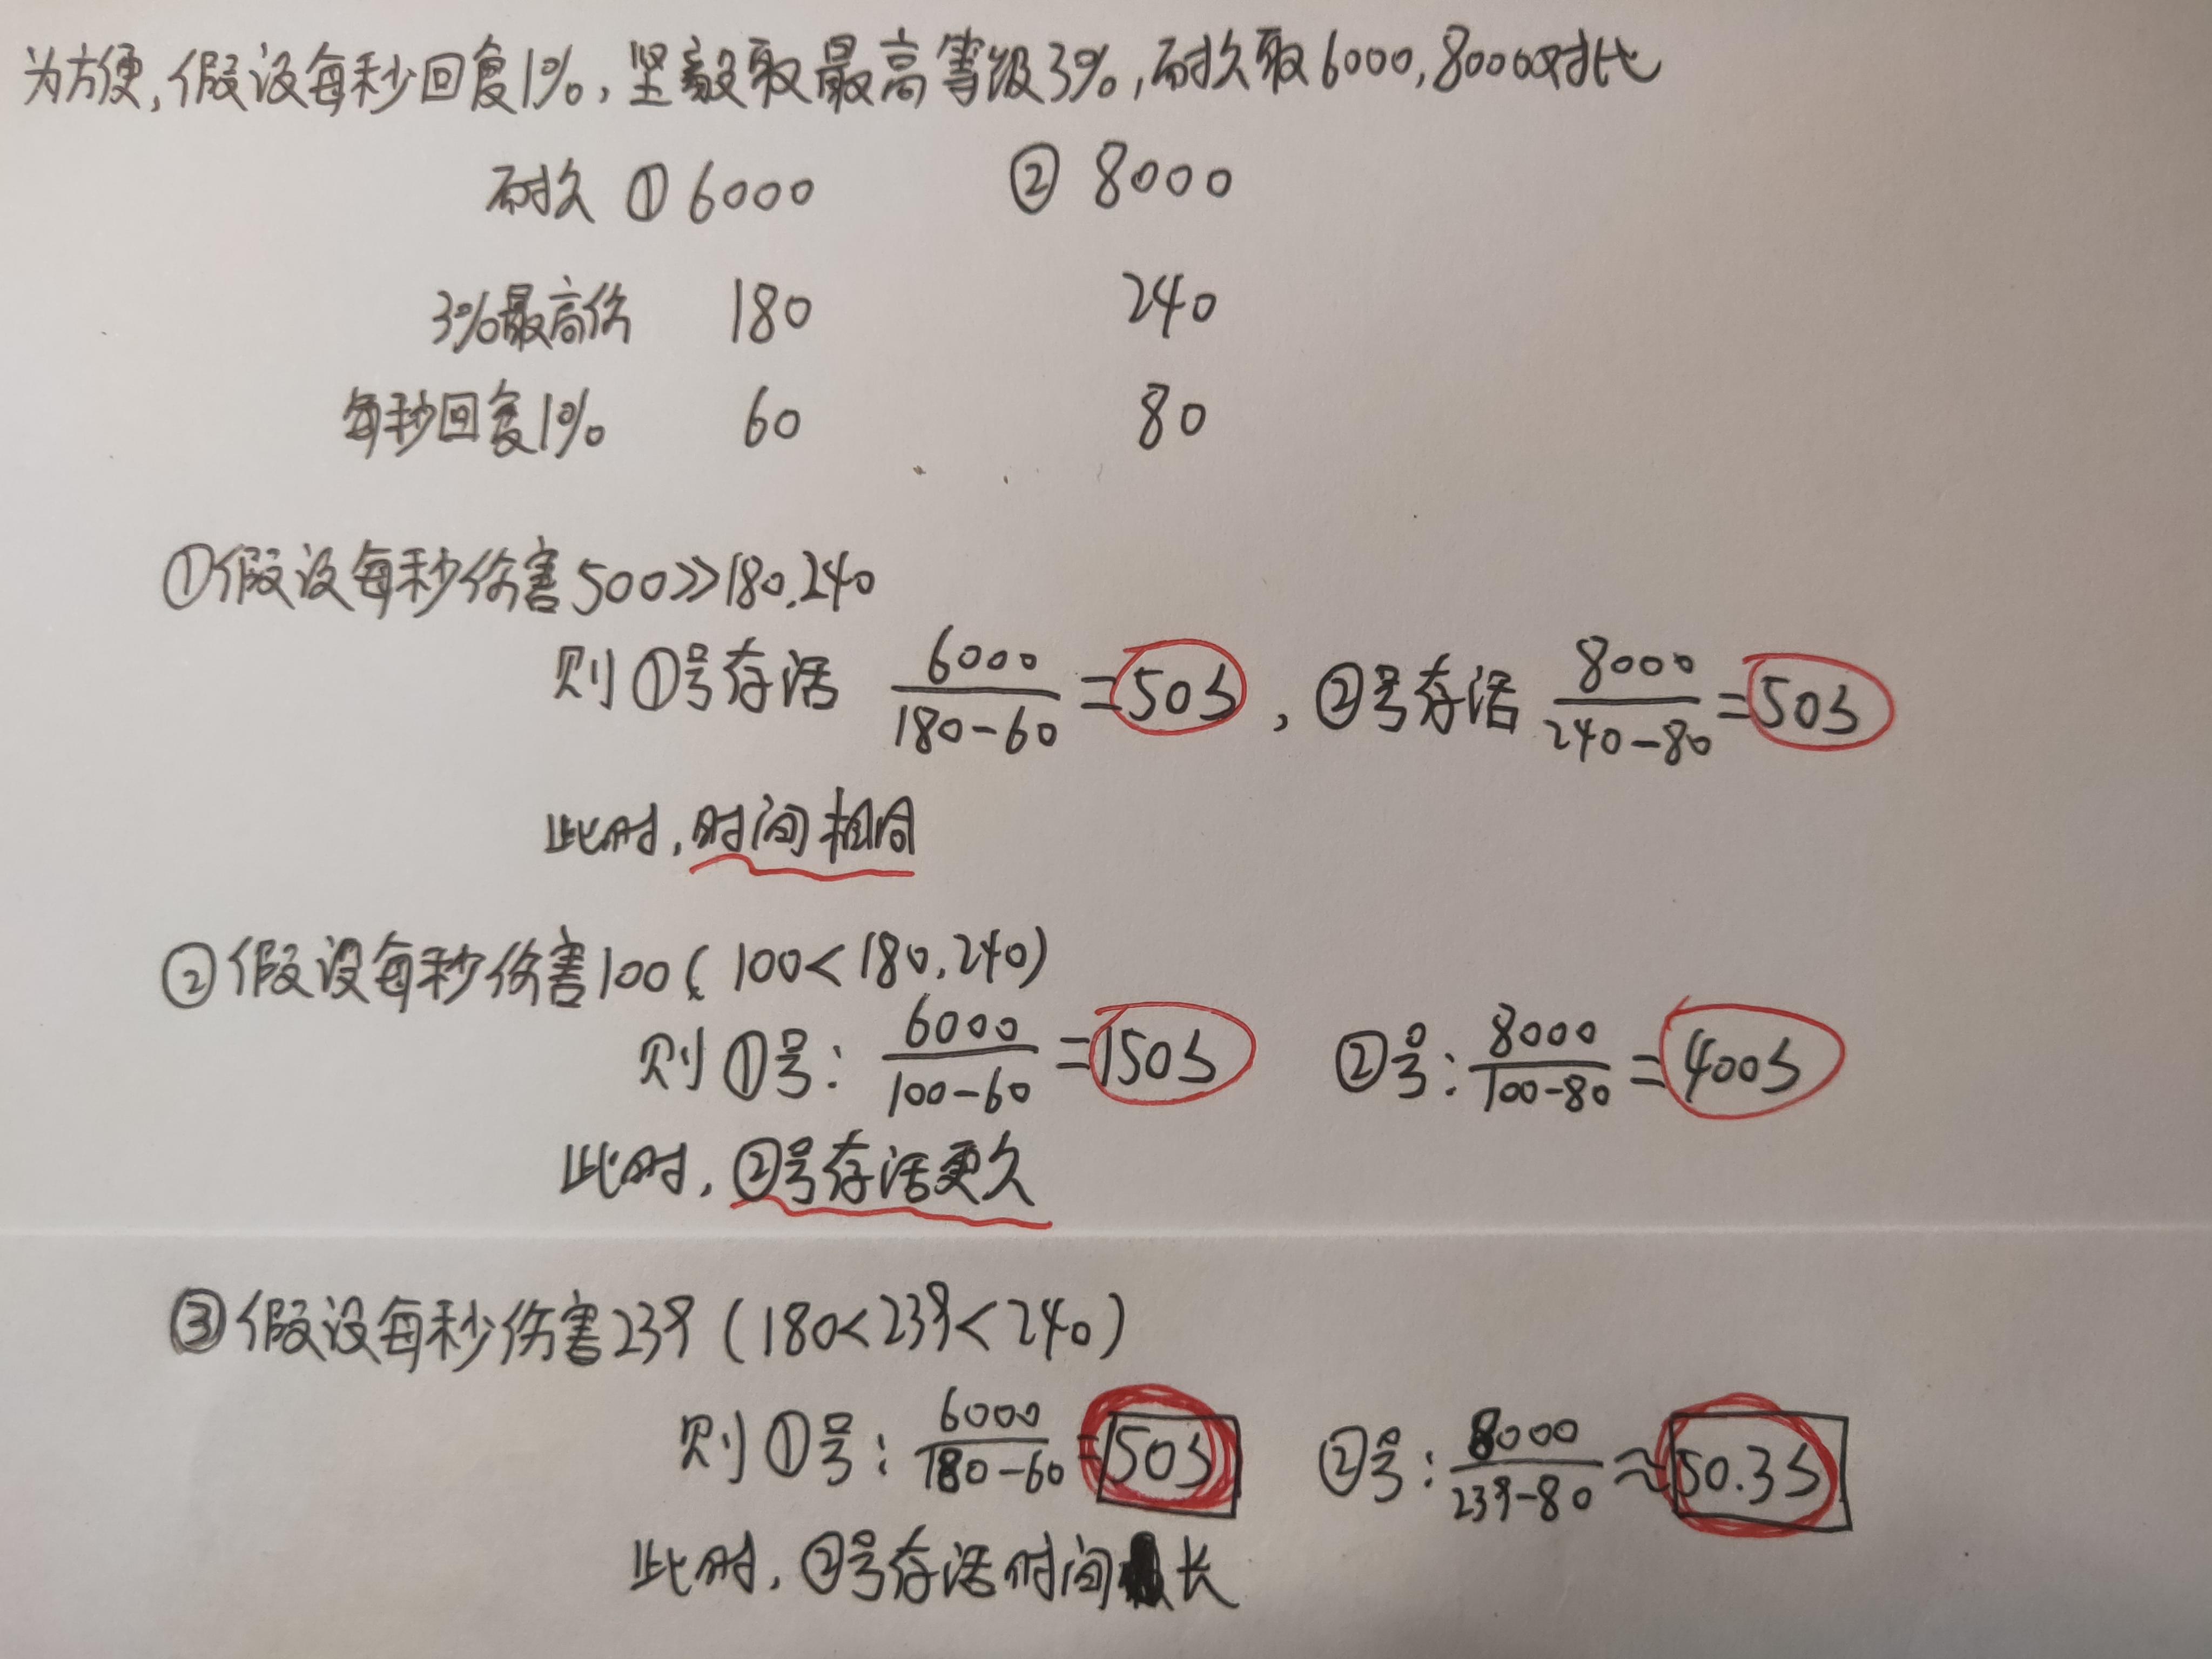 为方便,假设每秒回复1%,坚毅取最高等级3%,耐久取6000,8000对比
耐久 ① 6000 ② 8000
3%最高伤 180 240
每秒回复1% 60 80
①假设每秒伤害500>>180.240
则①号存活 6000/(180-60) =50s, ②号存活 8000/(240-80) =50s
此时,时间相同
②假设每秒伤害100(100<180,240)
则①号: 6000/(100-60) =150s ②号: 8000/(100-80) =400s
此时,②号存活更久
③假设每秒伤害239(180<239<240)
则①号: 6000/(180-60) =50s ②号: 8000/(239-80) ≈50.3s
此时,②号存活时间长